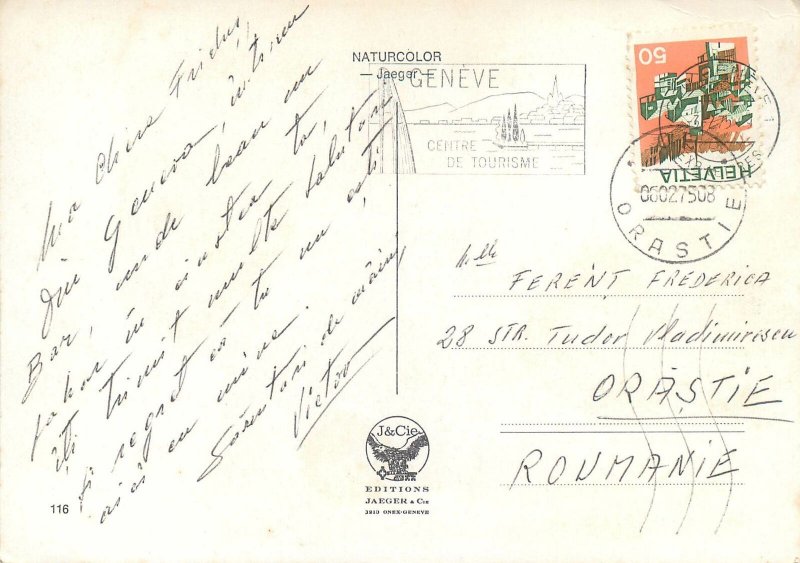 NATURCOLOR
— Jaeger —
GENÈVE
CENTRE
DE TOURISME
50
HELVETIA
06027508
ORASTIE
Ma chère Friduș,
Din Geneva,
Bar, unde beau un
în cinstea ta,
îți trimit multe salutări
și regret că tu nu ești
aici cu mine.
Sărutări de mâini,
Victor
Mlle
FERENȚ FREDERICA
28 STR. Tudor Vladimirescu
ORĂȘTIE
ROUMANIE
J&Cie
EDITIONS
JAEGER & Cie
3910 ONEX-GENEVE
116